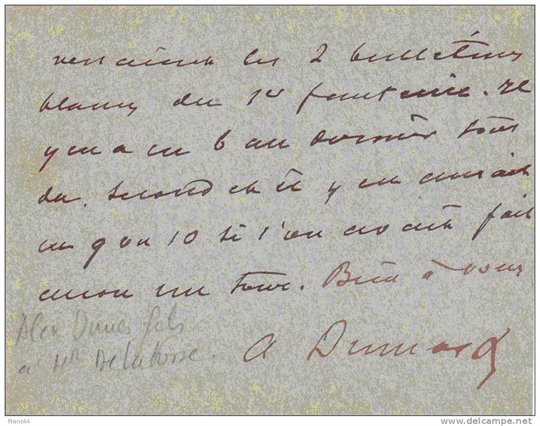 les 2 bulletins
blancs du 1er fauteuil. Il
y en a eu 6 au dernier tour
du second et il y en aurait
eu 9 ou 10 si l'on avait fait
encore un tour. Bien à vous
A Dumas f
Alex Dumas fils
a Mr Delahosse.
Prano64
© delcampe.net